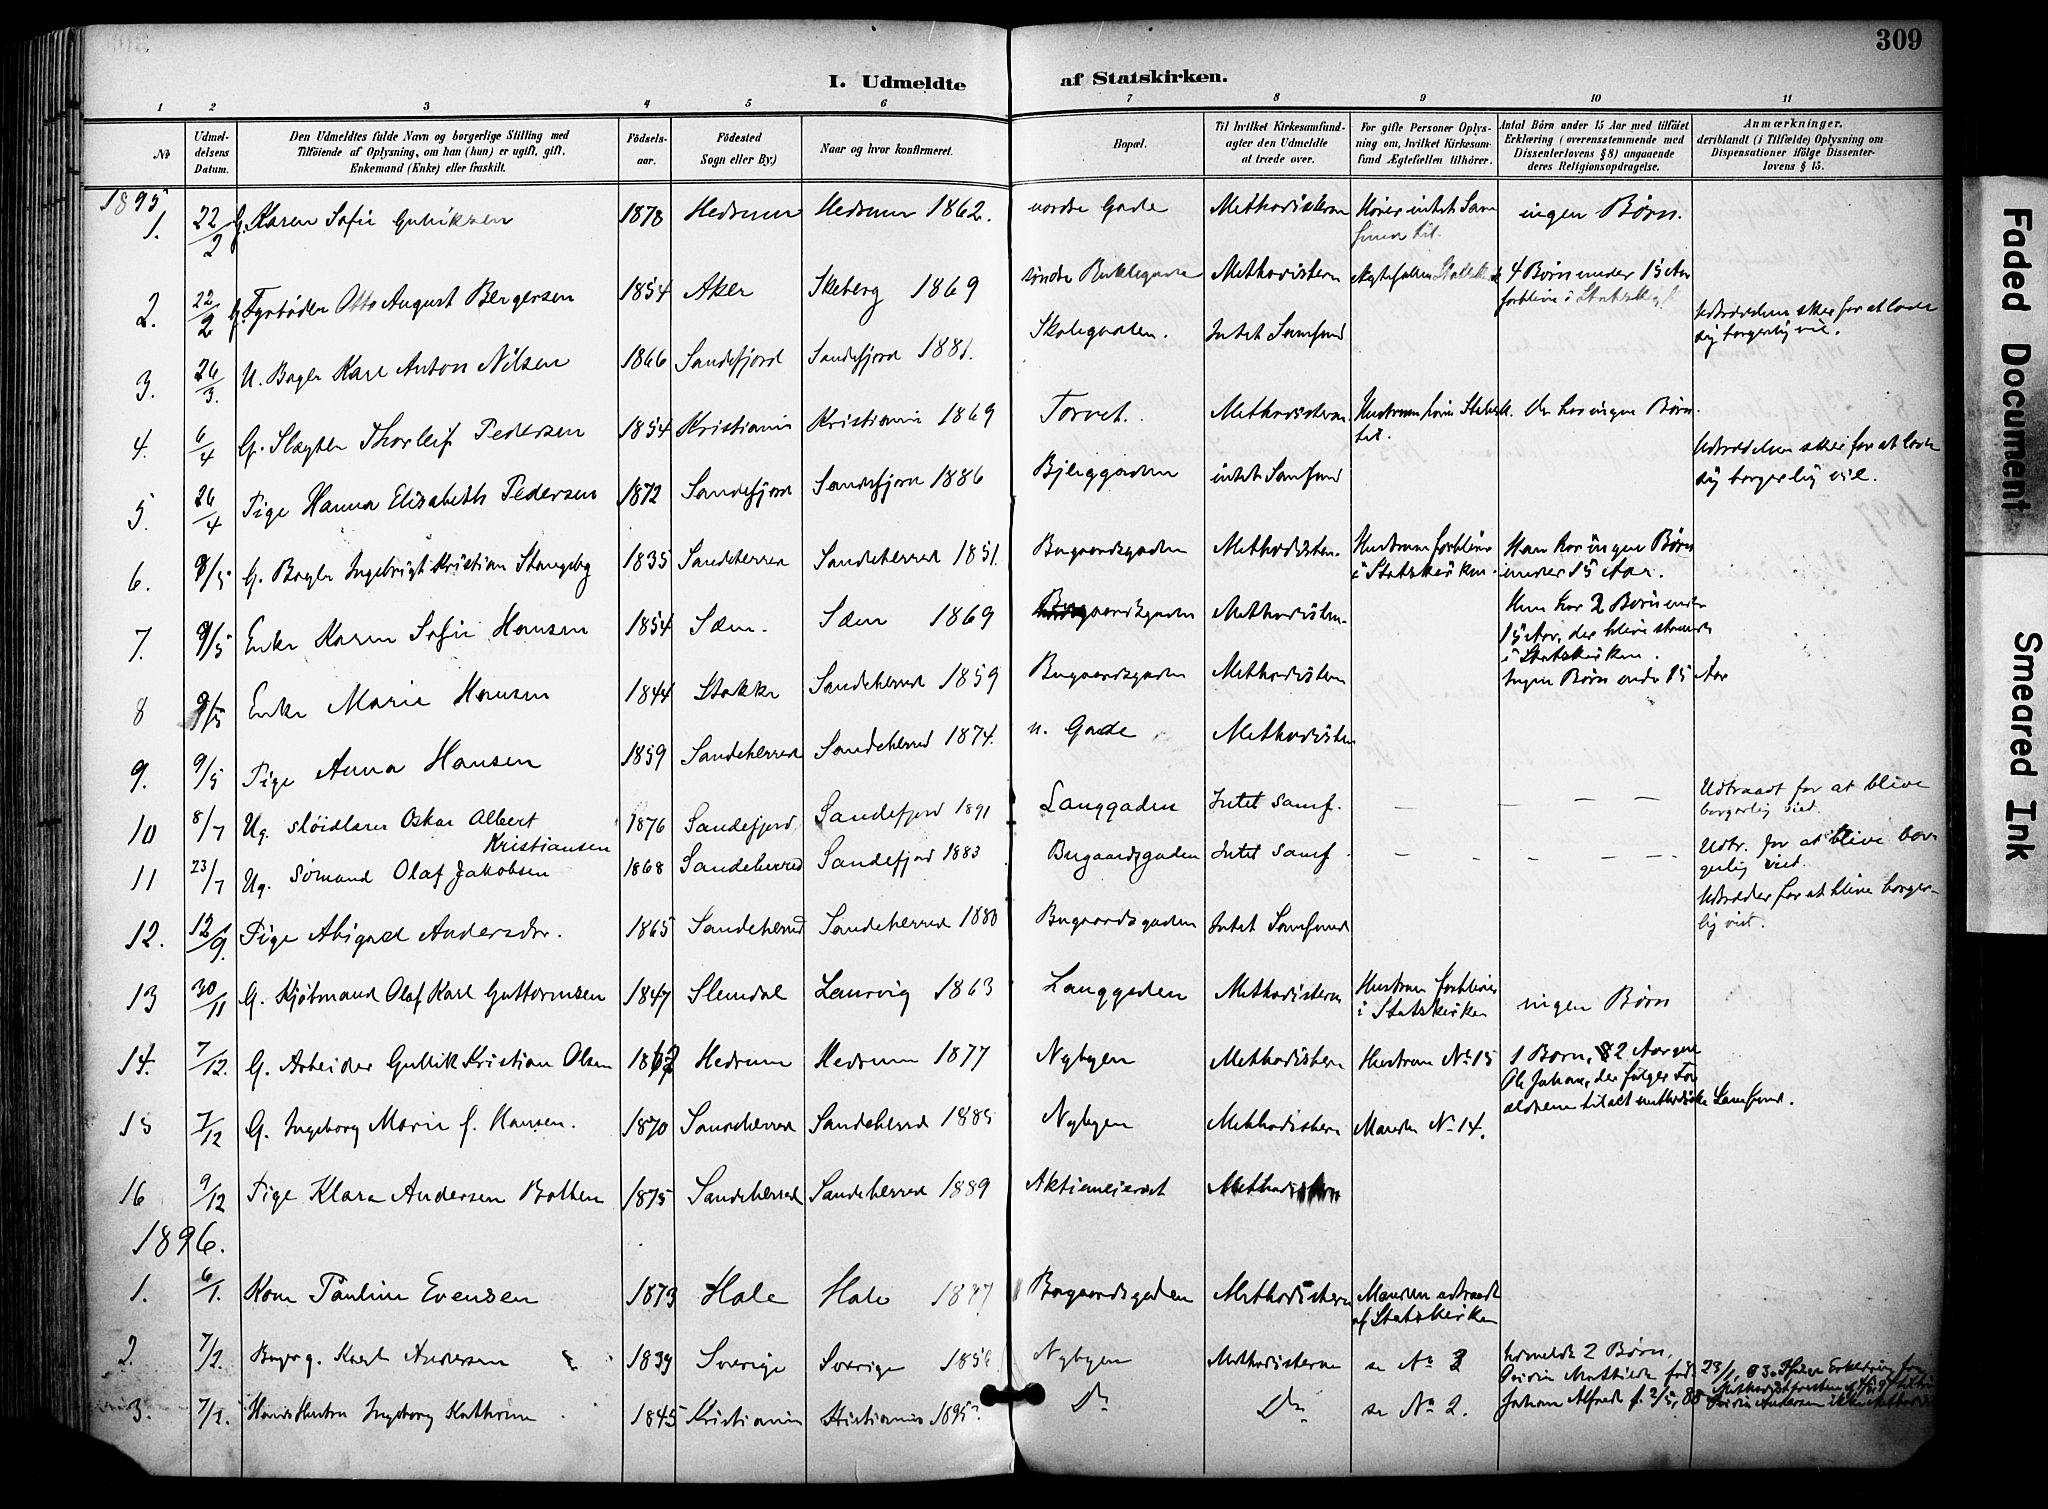 309
I. Udmeldte af Statskirken.
1 2 3 4 5 6 7 8 9 10 11
No
Udmel-
delsens
Datum.
Den Udmeldtes fulde Navn og borgerlige Stilling med
Tilföiende af Oplysning, om han (hun) er ugift, gift,
Enkemand (Enke) eller fraskilt.
Födsels-
aar.
Födested
Sogn eller By)
Naar og hvor konfirmeret.
Bopæl.
Til hvilket Kirkesamfund-
agter den Udmeldte
at træde over.
For gifte Personer Oplys-
ning om, hvilket Kirkesam-
fund Ægtefællen tilhörer.
Antal Börn under 15 Aar med tilföiet
Erklæring (overensstemmende med
Dissenterlovens § 8) angaaende
deres Religionsopdragelse.
Anmærkninger,
deriblandt (i Tilfælde) Oplysning om
Dispensationer ifölge Dissenter-
lovens § 15.
1895
1. 22/2 G. Karen Sofie Gulliksen 1878 Hedrum Hedrum 1862. nordre Gade Methodisterne Hører intet Sam
fund til. ingen Børn.
2. 22/2 G. Fyrbøder Otto August Bergersen 1854 Aker Skeberg 1869 søndre Methodistern 4 Børn under 15 Aar
forblive i
3. 26/3. U. Bager Karl Anton Nilsen 1866 Sandefjord Sandefjord 1881. Skolegaden. Intet Samfund Udtrædelsen sker for at lade
sig borgerlig vie.
4. 6/4 G. Slagter Thorleif Pedersen 1854 Kristiania Kristiania 1869 Torvet. Methodisterne Hustruen hører
til. Der har ingen Børn.
5. 26/4 Pige Hanna Elisabeth Pedersen 1872 Sandefjord Sandefjord 1886 Bjerggaden intet Samfund Udtrædelsen sker for at lade
sig borgerlig vie.
6. 9/5 G. Bager Ingebrigt Kristian Stangeby 1835 Sandeherred Sandeherred 1851. Bugaardsgaden Methodisten. Hustruen forbliver
i Statskirken. Han har ingen Børn
under 15 Aar.
7. 9/5 Enke Karen Sofie Hansen 1854 Sæm. Sæm 1869 Bugaardsgaden Methodisten. Hun har 2 Børn under
15 Aar, der blive staaende
i Statskirken.
8 9/5 Enke Marie Hansen 1844 Stokke Sandeherred 1859 Bugaardsgaden Methodisten Ingen Børn under 15 Aar
9. 9/5 Pige Anna Hansen 1859 Sandeherred Sandeherred 1874. n. Gade Methodisten
10 8/7 Ug. sløidlærer Oskar Albert
Kristiansen 1876 Sandefjord Sandefjord 1891 Langgaden Intet samf. — — — — Udtraadt for at blive
borgerlig viet.
11 23/7 Ug. Sømand Olaf Jakobsen 1868 Sandeherred Sandefjord 1883 Bugaardsgaden Intet samf. — — — — Udtr. for at blive bor-
gerlig viet.
12. 12/9. Pige Abigael Andersdtr. 1865 Sandeherred Sandeherred 1880 Bugaardsgaden Intet Samfund Udtræder for at blive borger-
lig viet.
13 30/11 G. Kjøbmand Olaf Karl Guttormsen 1847 Slemdal Laurvig 1863 Langgaden Methodisterne Hustruen forbliver
i Statskirken ingen Børn
14. 7/12. G. Arbeider Gullik Kristian Olsen Hedrum Hedrum 1877 Nybyen Methodisterne Hustrue No 15 1 Barn, 2 Aar gml
Ole Johan, der følger For
ældrene til det methodistiske Samfund.
15 7/12 G. Ingeborg Marie f. Hansen. 1870 Sandeherred Sandeherred 1885 Nybyen Methodistern Manden No 14.
16 9/12 Pige Klara Andersen Bolthen 1875 Sandeherred Sandeherred 1889 Aktiemeieriet Methodistern
1896.
1. 6/1. Kone Pauline Evensen 1873 Hole Hole 1887 Bugaardsgaden Methodistern Manden udtraadt
af Statskirken
2. 7/2. Bager g. Karl Andersen 1839 Sverige Sverige Nybyen Methodisterne se No 3 Udmeldt 2 Børn,
Mathilde født 23/1, 83.
3. 7/2. Hans Hustru Ingeborg Kathrine 1845 Kristiania Kristiania Do Do se No 2. Johan Alfred f. 2/5, 88
Faded Document
Smeared Ink